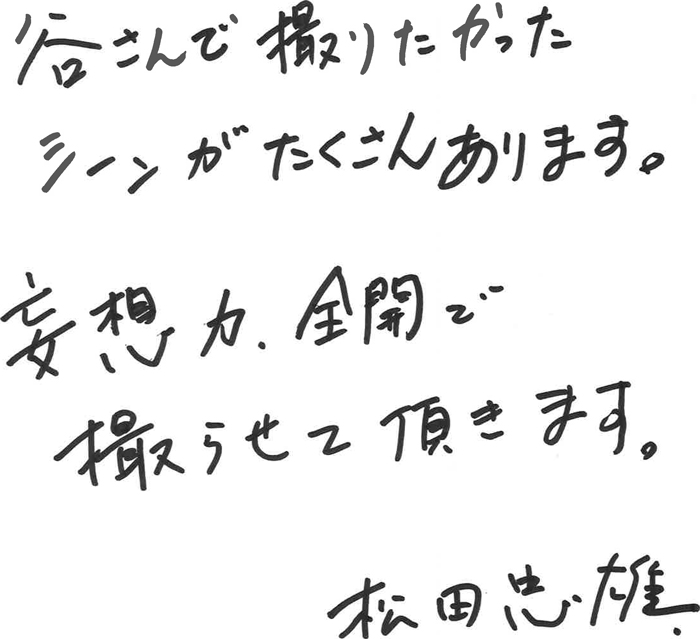 谷さんで撮りたかった
シーンがたくさんあります。
妄想力、全開で
撮らせて頂きます。
松田忠雄.